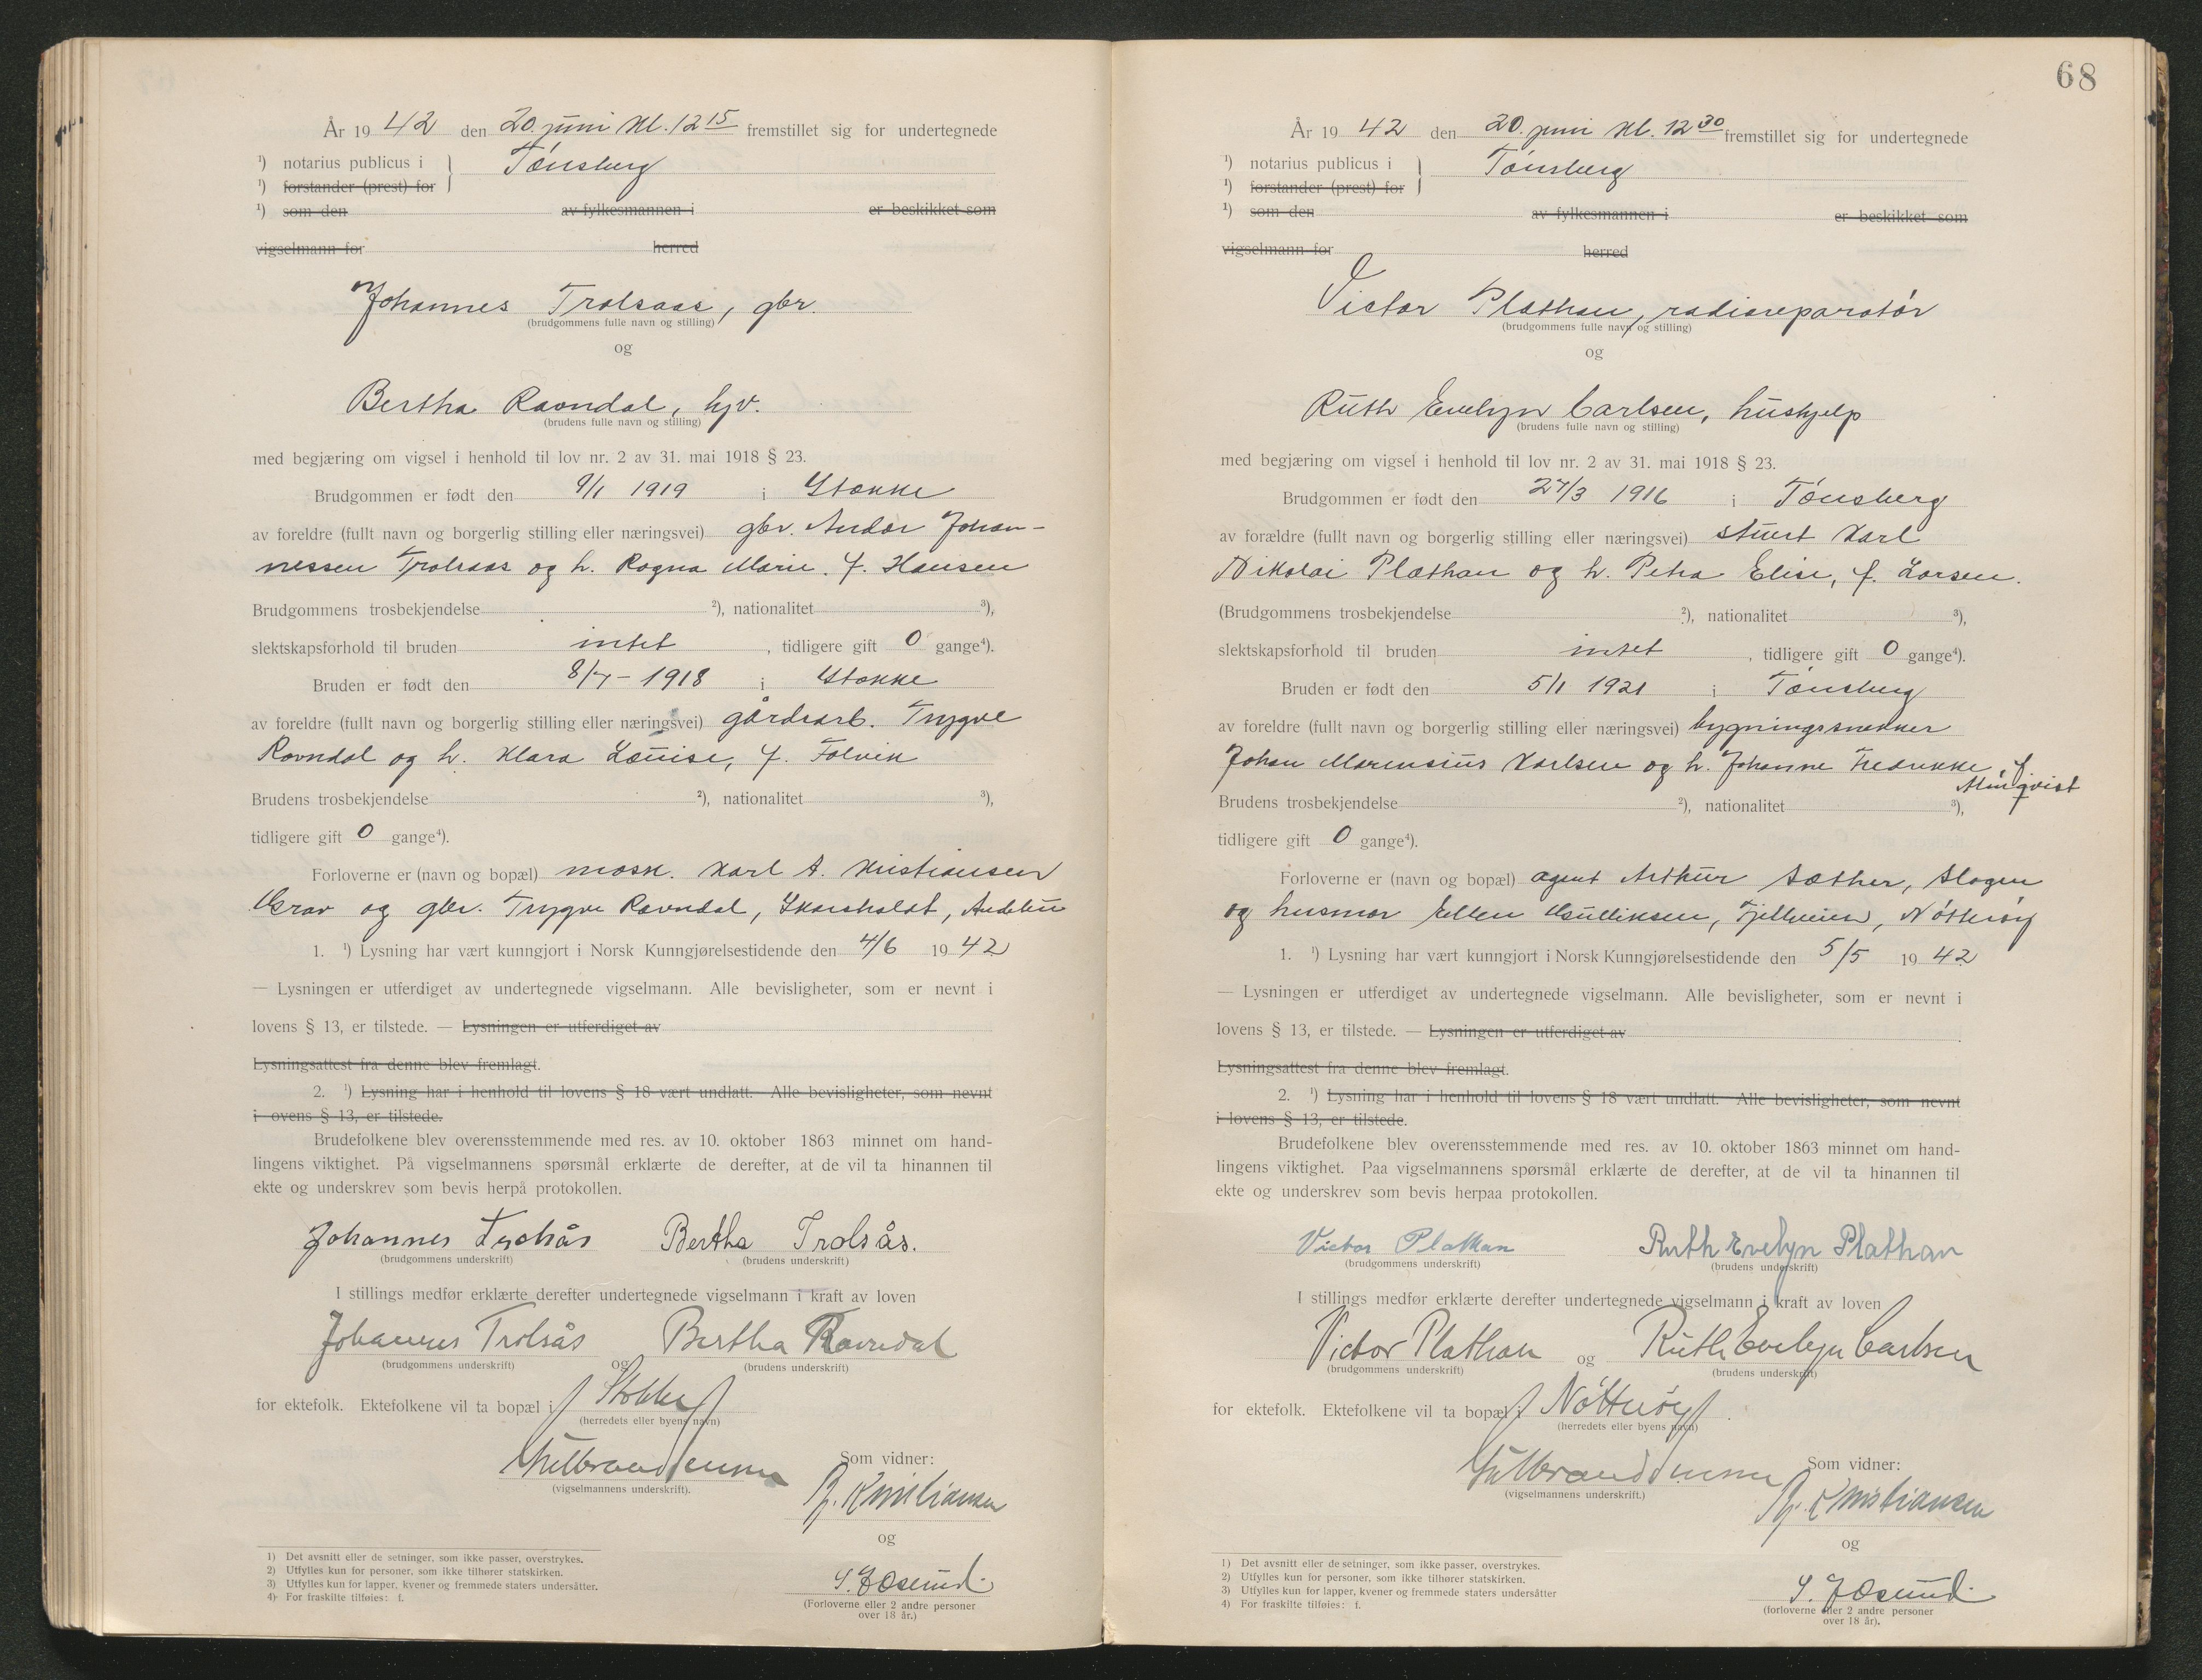 År 19 42 den 20. juni kl. 12 15 fremstillet sig for undertegnede
¹) notarius publicus i } Tønsberg
¹) forstander (prest) for
¹) som den av fylkesmannen i er beskikket som
vigselmann for herred
Johannes Trolsaas, gbr.
(brudgommens fulle navn og stilling)
og
Bertha Ravndal, hjv.
(brudens fulle navn og stilling)
med begjæring om vigsel i henhold til lov nr. 2 av 31. mai 1918 § 23.
Brudgommen er født den 9/1 1919 i Stokke
av foreldre (fullt navn og borgerlig stilling eller næringsvei) gbr. Andor Johan-
nessen Trolsaas og h. Ragna Marie, f. Hansen
Brudgommens trosbekjendelse ²), nationalitet ³),
slektskapsforhold til bruden intet , tidligere gift 0 gange⁴).
Bruden er født den 8/7 - 1918 i Stokke
av foreldre (fullt navn og borgerlig stilling eller næringsvei) gårdsarb. Trygve
Ravndal og h. Klara Louise, f. Folvik
Brudens trosbekjendelse ²), nationalitet ³),
tidligere gift 0 gange⁴).
Forloverne er (navn og bopæl) mask. Karl A. Kristiansen
Grav og gbr. Trygve Ravndal, Andebu
1. ¹) Lysning har vært kunngjort i Norsk Kunngjørelsestidende den 4/6 19 42
— Lysningen er utferdiget av undertegnede vigselmann. Alle bevisligheter, som er nevnt i
lovens § 13, er tilstede. — Lysningen er utferdiget av
Lysningsattest fra denne blev fremlagt.
2. ¹) Lysning har i henhold til lovens § 18 vært undlatt. Alle bevisligheter, som nevnt
i ovens § 13, er tilstede.
Brudefolkene blev overensstemmende med res. av 10. oktober 1863 minnet om hand-
lingens viktighet. På vigselmannens spørsmål erklærte de derefter, at de vil ta hinannen til
ekte og underskrev som bevis herpå protokollen.
Johannes Trolsås Bertha Trolsås.
(brudgommens underskrift) (brudens underskrift)
I stillings medfør erklærte derefter undertegnede vigselmann i kraft av loven
Johannes Trolsås og Bertha Ravndal
(brudgommens underskrift) (brudens underskrift)
for ektefolk. Ektefolkene vil ta bopæl i Stokke
(herredets eller byens navn)
(vigselmannens underskrift).
Som vidner:
Kristiansen
og
(Forloverne eller 2 andre personer
over 18 år.)
1) Det avsnitt eller de setninger, som ikke passer, overstrykes.
2) Utfylles kun for personer, som ikke tilhører statskirken.
3) Utfylles kun for lapper, kvener og fremmede staters undersåtter.
4) For fraskilte tilføies: f.
68
År 19 42 den 20. juni kl. 12 30 fremstillet sig for undertegnede
¹) notarius publicus i } Tønsberg
¹) forstander (prest) for
¹) som den av fylkesmannen i er beskikket som
vigselmann for herred
Victor Plathan, radioreparatør
(brudgommens fulle navn og stilling)
og
Ruth Evelyn Carlsen, hushjelp
(brudens fulle navn og stilling)
med begjæring om vigsel i henhold til lov nr. 2 av 31. mai 1918 § 23.
Brudgommen er født den 27/3 1916 i Tønsberg
av forældre (fullt navn og borgerlig stilling eller næringsvei) stuert Karl
Nikolai Plathan og h. Petra Elise, f. Larsen.
(Brudgommens trosbekjendelse ²), nationalitet ³),
slektskapsforhold til bruden intet , tidligere gift 0 gange⁴).
Bruden er født den 5/1 1921 i Tønsberg
av foreldre (fullt navn og borgerlig stilling eller næringsvei) bygningssnekker
Johan Marensius Karlsen og h. Johanne Fredrikke, f.
Almqvist
Brudens trosbekjendelse ²), nationalitet ³),
tidligere gift 0 gange⁴).
Forloverne er (navn og bopæl) agent Arthur Sæther, Slagen
og husmor Ellen Gulliksen, Nøtterøy
1. ¹) Lysning har vært kunngjort i Norsk Kunngjørelsestidende den 5/5 19 42
— Lysningen er utferdiget av undertegnede vigselmann. Alle bevisligheter, som er nevnt i
lovens § 13, er tilstede. — Lysningen er utferdiget av
Lysningsattest fra denne blev fremlagt.
2. ¹) Lysning har i henhold til lovens § 18 vært undlatt. Alle bevisligheter, som nevnt
i lovens § 13, er tilstede.
Brudefolkene blev overensstemmende med res. av 10. oktober 1863 minnet om hand-
lingens viktighet. Paa vigselmannens spørsmål erklærte de derefter, at de vil ta hinannen til
ekte og underskrev som bevis herpaa protokollen.
Victor Plathan Ruth Evelyn Plathan
(brudgommens underskrift) (brudens underskrift)
I stillings medfør erklærte derefter undertegnede vigselmann i kraft av loven
Victor Plathan og Ruth Evelyn Carlsen
(brudgommens underskrift) (brudens underskrift)
for ektefolk. Ektefolkene vil ta bopæl i Nøtterøy
(herredets eller byens navn)
(vigselmannens underskrift.)
Som vidner:
Kristiansen
og
(forloverne eller 2 andre personer
over 18 år).
1) Det avsnitt eller de setninger, som ikke passer, overstrykes.
2) Utfylles kun for personer, som ikke tilhører statskirken.
3) Utfylles kun for lapper, kvener og fremmede staters undersåtter
4) For fraskilte tilføies: f.